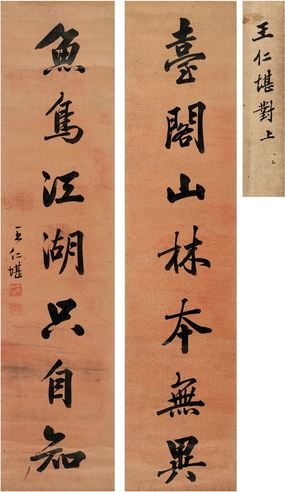 王仁堪對上
臺閣山林本無異
魚鳥江湖只自知
王仁堪